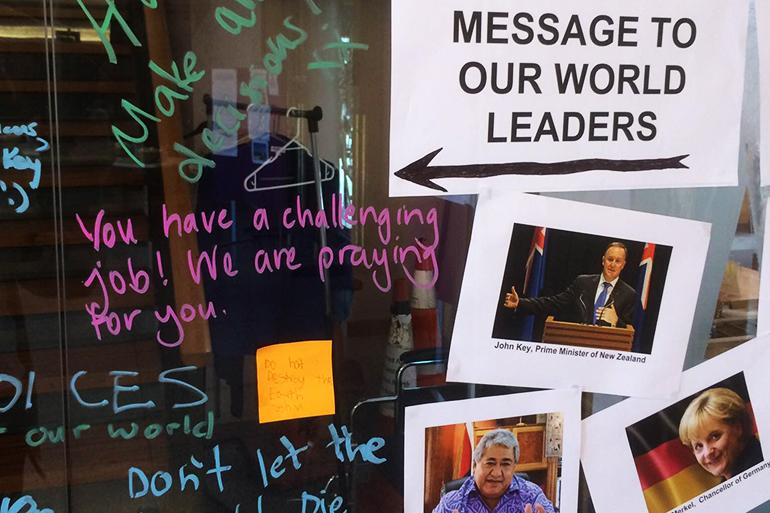 MESSAGE TO
OUR WORLD
LEADERS
Make
decisions
it
Key
:)
You have a challenging
job! We are praying
for you.
John Key, Prime Minister of New Zealand
Do not
Destroy the
Earth
OICES
our world
Don't let the
Die
Merkel, Chancellor of Germany